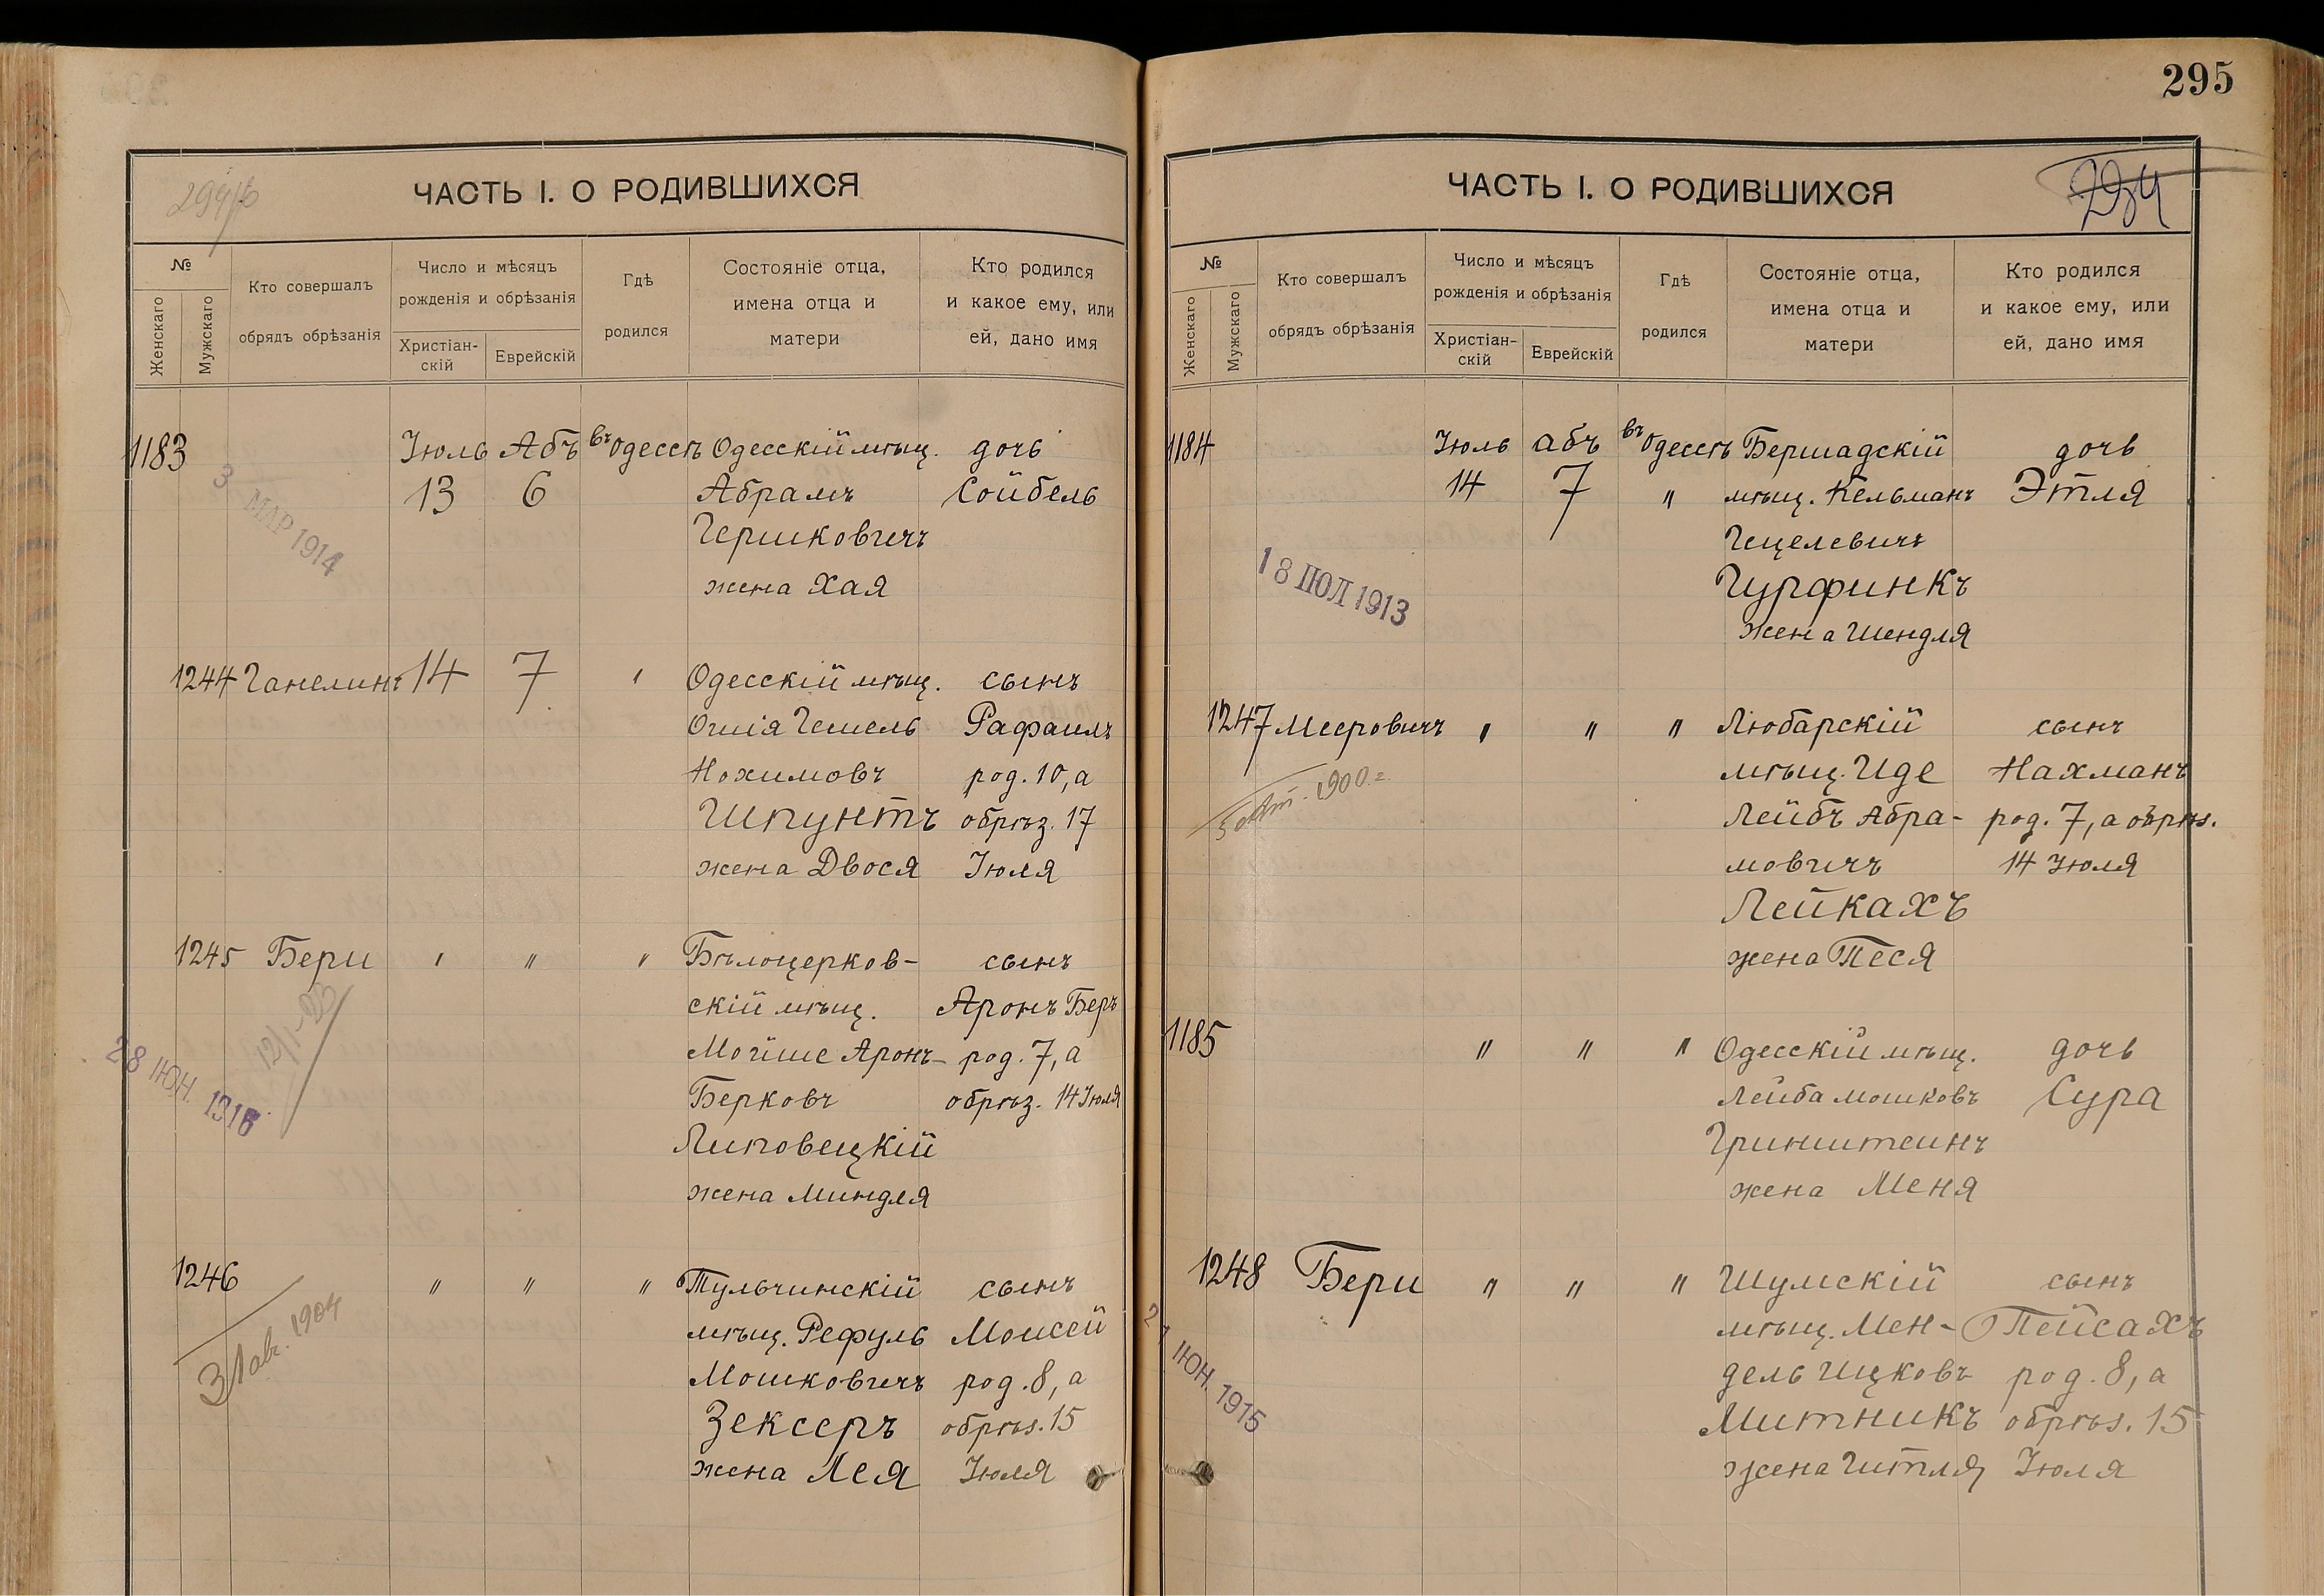 295
294/б
ЧАСТЬ I. О РОДИВШИХСЯ
№
Женскаго
Мужскаго
Кто совершалъ
обрядъ обрѣзанія
Число и мѣсяцъ
рожденія и обрѣзанія
Христіан-
скій
Еврейскій
Гдѣ
родился
Состояніе отца,
имена отца и
матери
Кто родился
и какое ему, или
ей, дано имя
1183 Іюль Абъ въ Одессѣ Одесскій мѣщ. дочь
13 6 Абрамъ Сойбель
Гершковичъ
жена Хая
3 МАР 1914
1244 Ганелинъ 14 7 " Одесскій мѣщ. сынъ
Огшія Гешель Рафаилъ
Нохимовъ род. 10, а
Шпунтъ обрѣз. 17
жена Двося Іюля
1245 Бери " " " Бѣлоцерков- сынъ
скій мѣщ. Аронъ Беръ
Мойше Аронъ- род. 7, а
Берковъ обрѣз. 14 Іюля
Липовецкій
жена Миндля
28 ІЮН. 1916
1246 " " " Тульчинскій сынъ
мѣщ. Рефуль Моисей
Мошковичъ род. 8, а
Зексеръ обрѣз. 15
жена Лея Іюля
31 авг. 1904
ЧАСТЬ I. О РОДИВШИХСЯ
294
№
Женскаго
Мужскаго
Кто совершалъ
обрядъ обрѣзанія
Число и мѣсяцъ
рожденія и обрѣзанія
Христіан-
скій
Еврейскій
Гдѣ
родился
Состояніе отца,
имена отца и
матери
Кто родился
и какое ему, или
ей, дано имя
1184 Іюль абъ въ Одессѣ Бершадскій дочь
14 7 " мѣщ. Кельманъ Этля
Гецелевичъ
Гурфинкъ
жена Шендля
18 ІЮЛ 1913
1247 Мееровичъ " " " Любарскій сынъ
мѣщ. Иде Нахманъ
Лейбъ Абра- род. 7, а обрѣз.
мовичъ 14 Іюля
Лейкахъ
жена Песя
1900 г.
1185 " " " Одесскій мѣщ. дочь
Лейба Мошковъ Сура
Гринштейнъ
жена Меня
1248 Бери " " " Шумскій сынъ
мѣщ. Мен- Пейсахъ
дель Ицковъ род. 8, а
Митникъ обрѣз. 15
жена Гитля Іюля
21 ІЮН. 1915